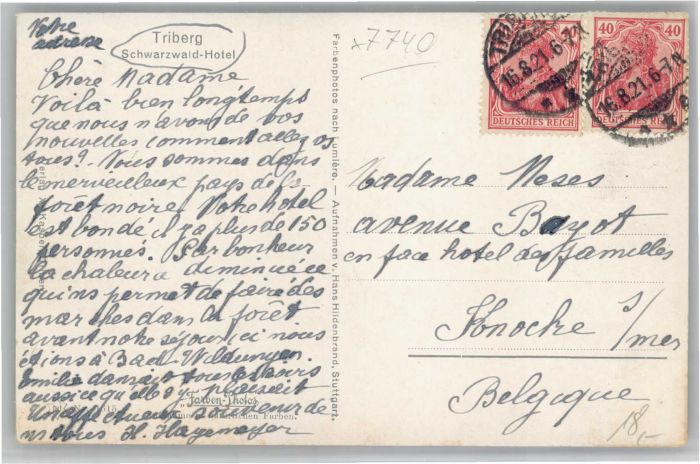 Votre
adresse
Triberg
Schwarzwald-Hotel
Chère Madame
Voilà bien longtemps
que nous n'avons de vos
nouvelles comment allez os
tous? Nous sommes dans
le merveilleux pays de la
foret noire. Notre hotel
est bondé il y a plus de 150
personnes. Par bonheur
la chaleur a diminuée ce
qui ns permet de faire des
marches dans la foret
avant notre séjour ici nous
étions à Bad-Wildungen.
Emilie dansait tous les jours
aussi ce qu'elle s'y plaisait
Un affectueux souvenir de
ns tous H. Hagemeyer
"Farben-Photos
Farben.
Farbenphotos nach Lumière. — Aufnahmen v. Hans Hildenbrand, Stuttgart.
x7740
16.8.21.6-7N
DEUTSCHES REICH
16.8.21.6-7N
40 40
DEUTSCHES REICH
Madame Meses
avenue Bayot
en face hotel des familles
Knocke s/mer
Belgique
18,-